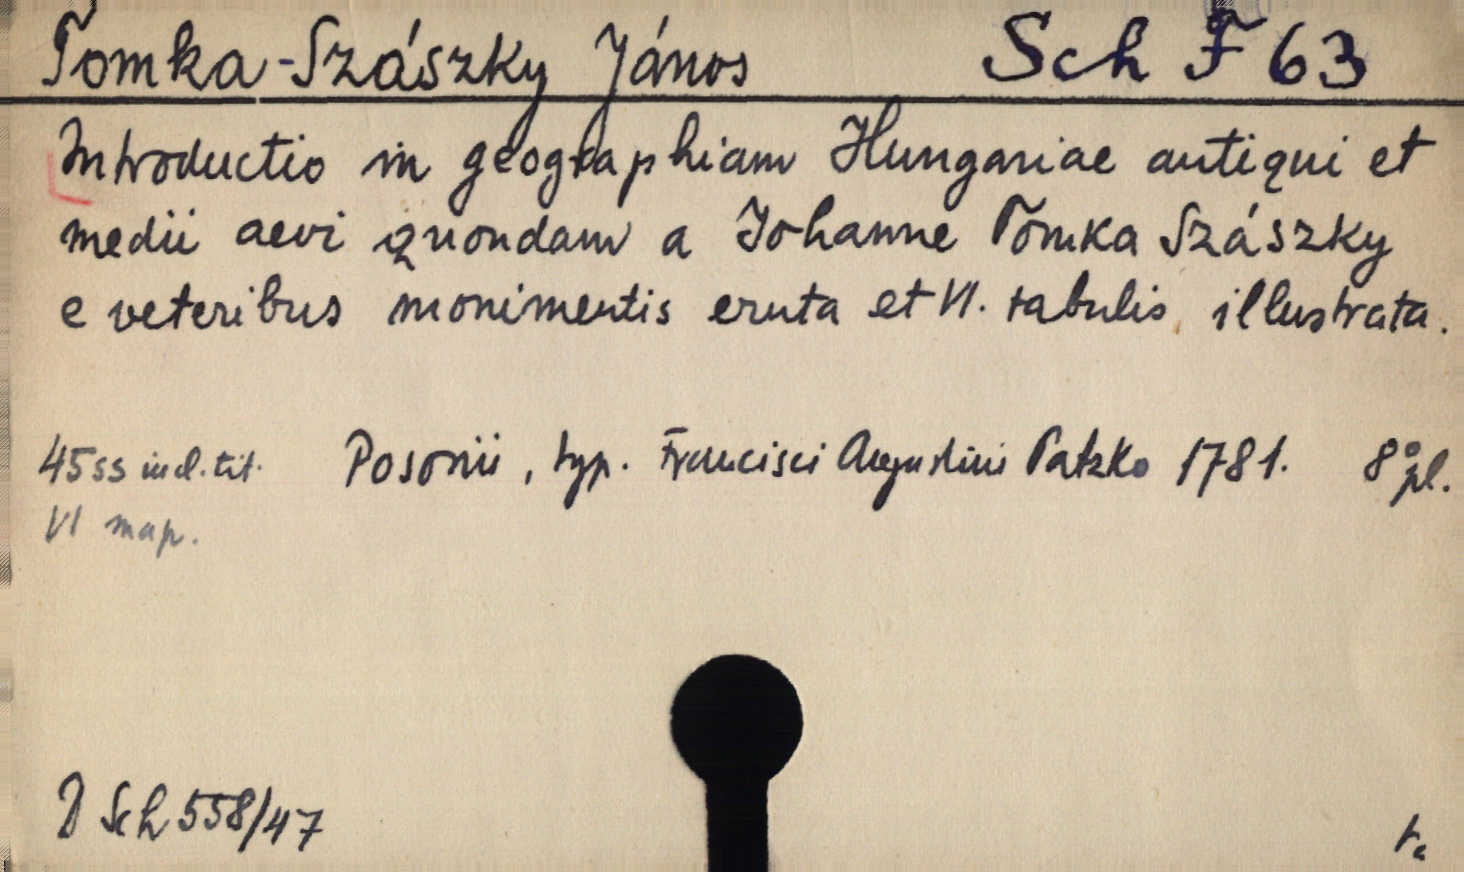 Tomka-Szászky János Sch F 63
Introductio in geographiam Hungariae antiqui et
medii aevi quondam a Johanne Tomka Szászky
e veteribus monimentis eruta et VI. tabulis illustrata.
45 ss incl. tit. Posonii, typ. Francisci Augustini Patzko 1781. 8° pl.
VI map.
Sch 558/47